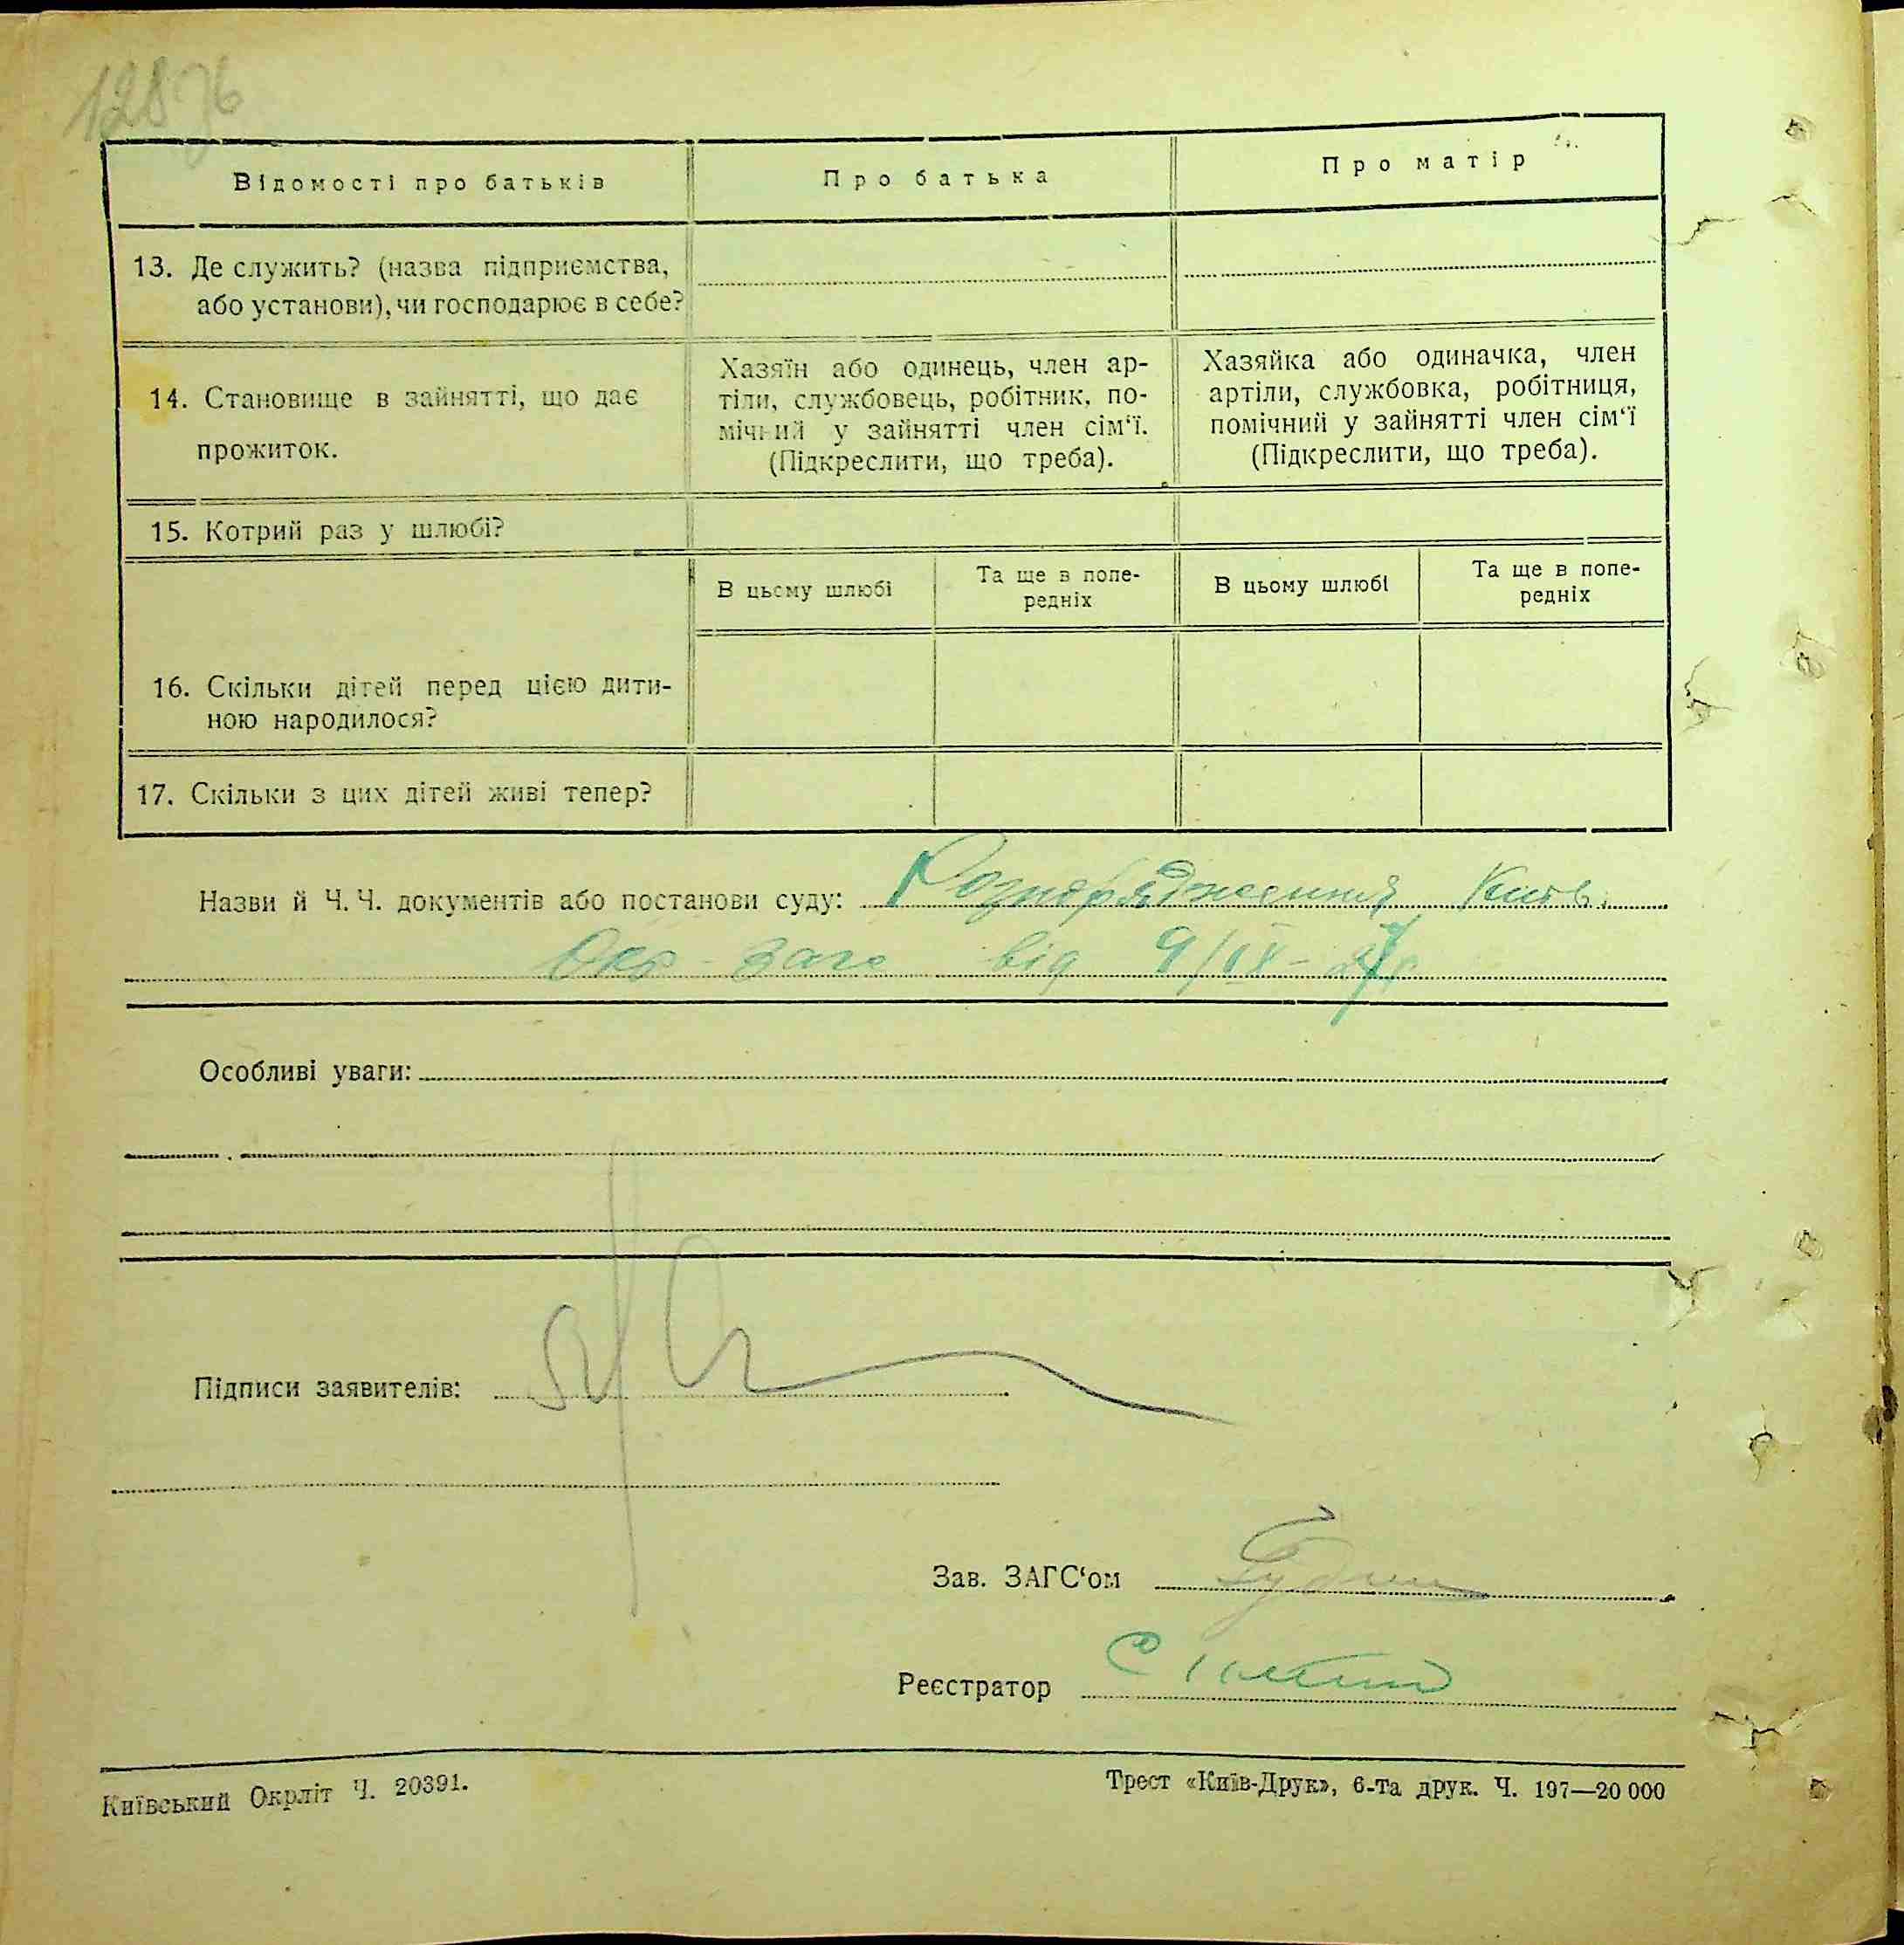 Відомості про батьків
Про батька
Про матір
13. Де служить? (назва підприємства,
або установи), чи господарює в себе?
14. Становище в зайнятті, що дає
прожиток.
Хазяїн або одинець, член ар-
тіли, службовець, робітник, по-
мічний у зайнятті член сім‘ї.
(Підкреслити, що треба).
Хазяйка або одиначка, член
артіли, службовка, робітниця,
помічний у зайнятті член сім‘ї
(Підкреслити, що треба).
15. Котрий раз у шлюбі?
В цьому шлюбі
Та ще в попе-
редніх
В цьому шлюбі
Та ще в попе-
редніх
16. Скільки дітей перед цією дити-
ною народилося?
17. Скільки з цих дітей живі тепер?
Назви й Ч. Ч. документів або постанови суду: Розпорядження Київ.
Окр-Загс від 9/IX-
Особливі уваги:
Підписи заявителів:
Зав. ЗАГС‘ом
Реєстратор
Київський Окрліт Ч. 20391.
Трест «Київ-Друк», 6-та друк. Ч. 197—20 000